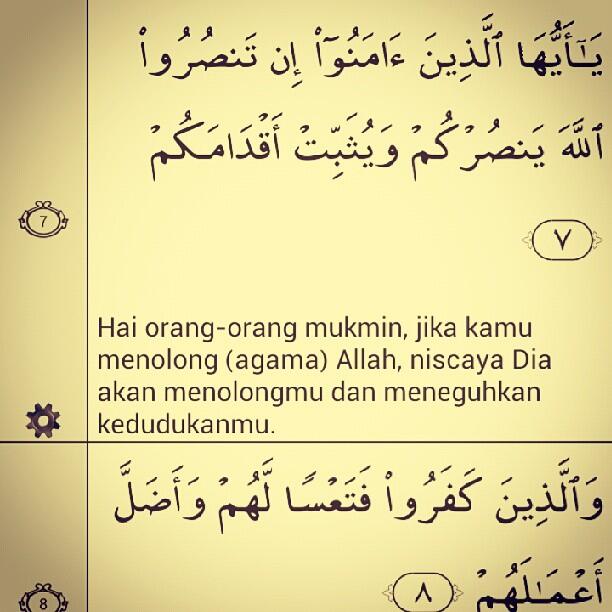 يَـٰٓأَيُّهَا ٱلَّذِينَ ءَامَنُوٓا۟ إِن تَنصُرُوا۟
ٱللَّهَ يَنصُرْكُمْ وَيُثَبِّتْ أَقْدَامَكُمْ
7
٧
Hai orang-orang mukmin, jika kamu
menolong (agama) Allah, niscaya Dia
akan menolongmu dan meneguhkan
kedudukanmu.
وَٱلَّذِينَ كَفَرُوا۟ فَتَعْسًا لَّهُمْ وَأَضَلَّ
أَعْمَـٰلَهُمْ ٨
8